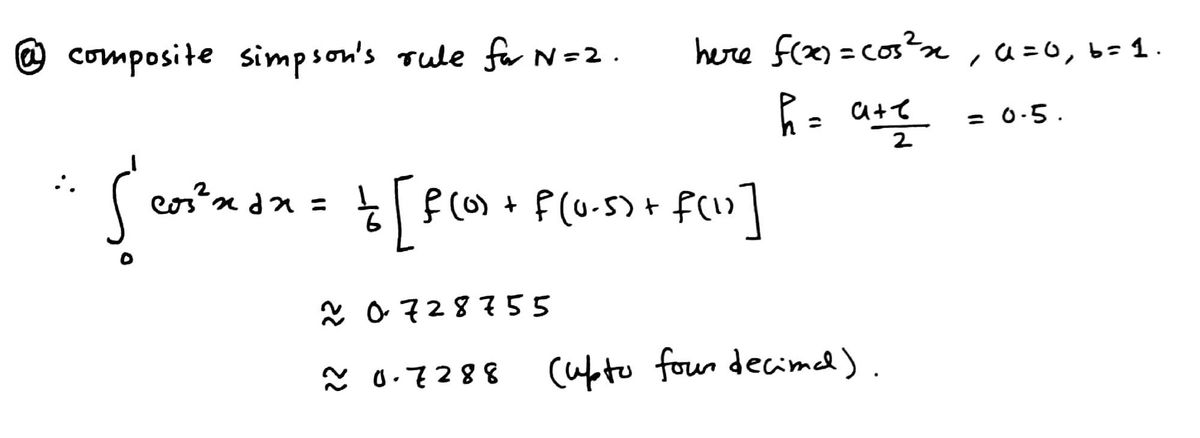 ⓐ composite simpson's rule for N=2. here f(x) = cos²x , a=0, b=1.
h = a+b/2 = 0.5.
∴ ∫₀¹ cos²x dx = 1/6 [f(0) + f(0.5) + f(1)]
≈ 0.728755
≈ 0.7288 (upto four decimal).